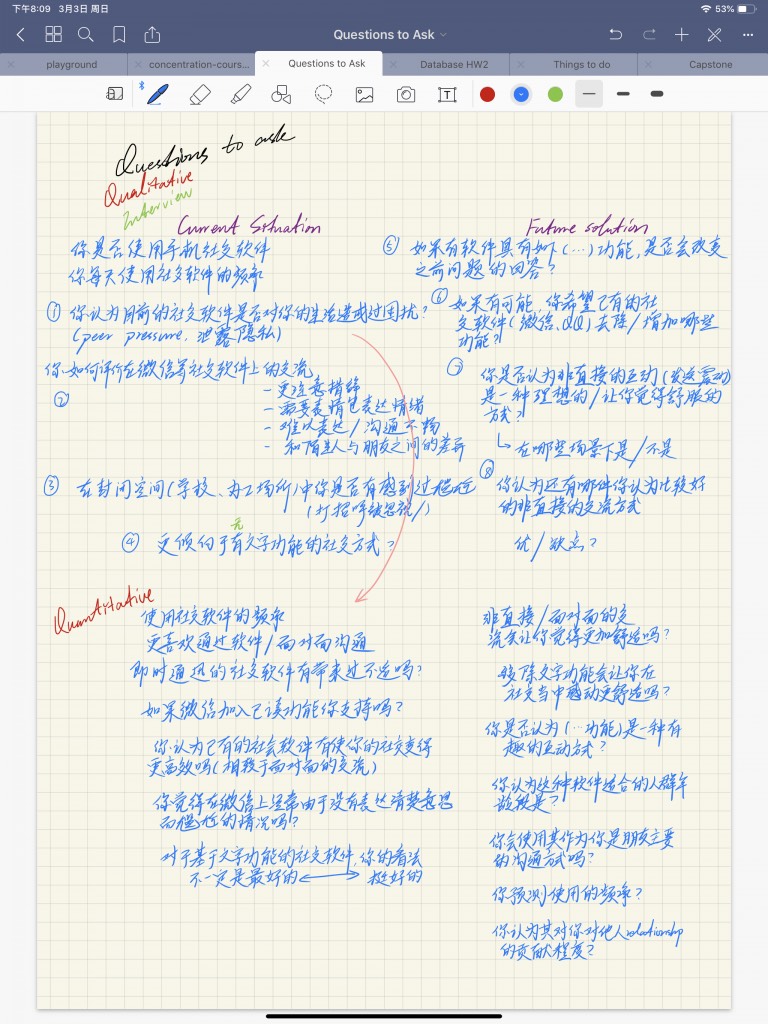 下午8:09 3月3日 周日
53%
Questions to Ask
playground
concentration-cours...
Questions to Ask
Database HW2
Things to do
Capstone
Questions to ask
Qualitative
Interview
Current Situation
你是否使用手机社交软件
你每天使用社交软件的频率
① 你认为目前的社交软件是否对你的生活造成过困扰?
(peer pressure, 泄露隐私)
你如何评价在微信等社交软件上的交流
②
- 更注意措辞
- 需要表情包表达情绪
- 难以表达/沟通不畅
- 和陌生人与朋友之间的差异
③ 在封闭空间(学校、办工场所)中你是否有感到过尴尬
(打招呼被忽视/)
无
④ 更倾向于有文字功能的社交方式?
Future solution
⑤ 如果有软件具有如下(...)功能,是否会改变
之前问题的回答?
⑥ 如果有可能,你希望已有的社
交软件(微信、QQ)去除/增加哪些
功能?
⑦ 你是否认为非直接的互动(发送震动)
是一种理想的/让你觉得舒服的
方式?
↳ 在哪些场景下是/不是
⑧ 你认为还有哪些你认为比较好
的非直接的交流方式
优/缺点?
Quantitative
使用社交软件的频率
更喜欢通过软件/面对面沟通
即时通迅的社交软件有带来过不适吗?
如果微信加入已读功能你支持吗?
你认为已有的社会软件有使你的社交变得
更高效吗(相较于面对面的交流)
你觉得在微信上经常由于没有表达清楚意思
而尴尬的情况吗?
对于基于文字功能的社交软件,你的看法
不一定是最好的 ⟷ 挺好的
非直接/面对面的交
流会让你觉得更加舒适吗?
移除文字功能会让你在
社交当中感动更舒适吗?
你是否认为(...功能)是一种有
趣的互动方式?
你认为这种软件适合的人群年
龄段是?
你会使用其作为你是朋友主要
的沟通方式吗?
你预测使用的频率?
你认为其对你对他人relationship
的贡献程度?